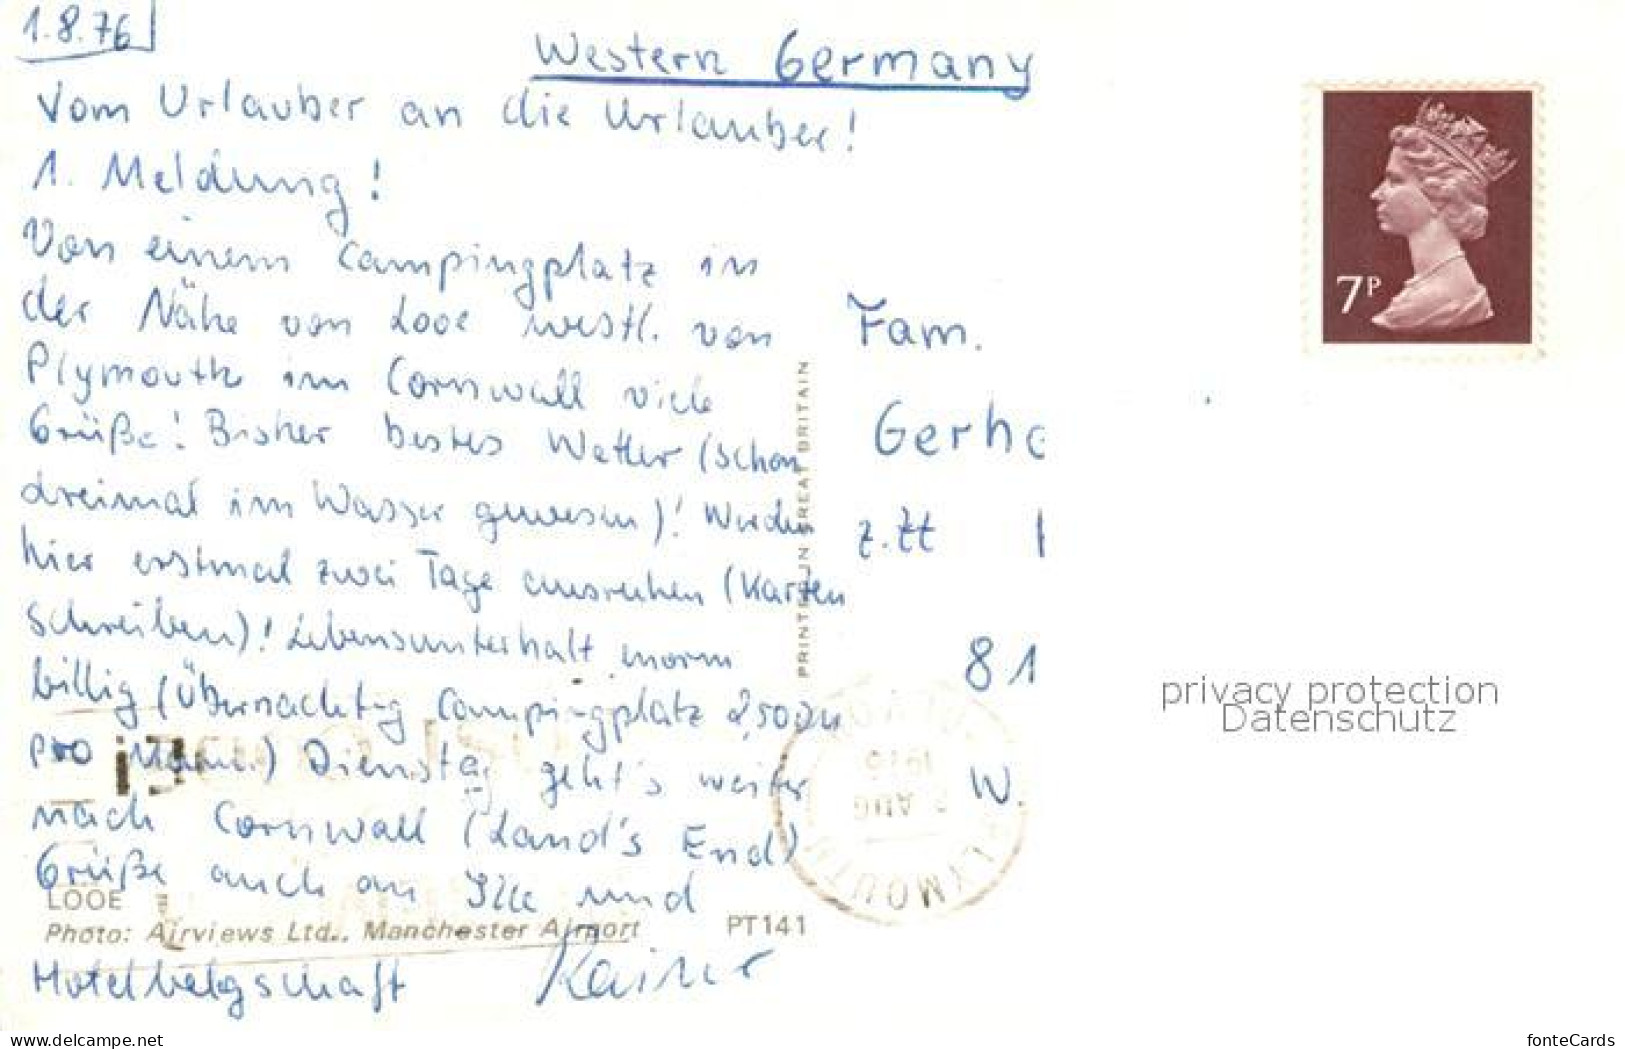 1.8.76
Western Germany
Vom Urlauber an die Urlauber!
1. Meldung!
Von einem Campingplatz in
der Nähe von Looe westl. von
Plymouth im Cornwall viele
Grüße! Bisher bestes Wetter (schon
dreimal im Wasser gewesen)! Werden
hier erstmal zwei Tage ausruhen (Karten
schreiben)! Lebensunterhalt enorm
billig (Übernachtg Campingplatz 2,50 DM
pro Mann.) Dienstag geht's weiter
nach Cornwall (Land's End)
Grüße auch an Ille und
Hotelbelgschaft Rainer
7P
Fam.
Gerh
z.Zt
81
W.
PRINTED IN GREAT BRITAIN
PLYMOUTH
2 AUG
1976
LOOE
Photo: Airviews Ltd., Manchester Airport PT141
privacy protection
Datenschutz
www.delcampe.net
fonteCards